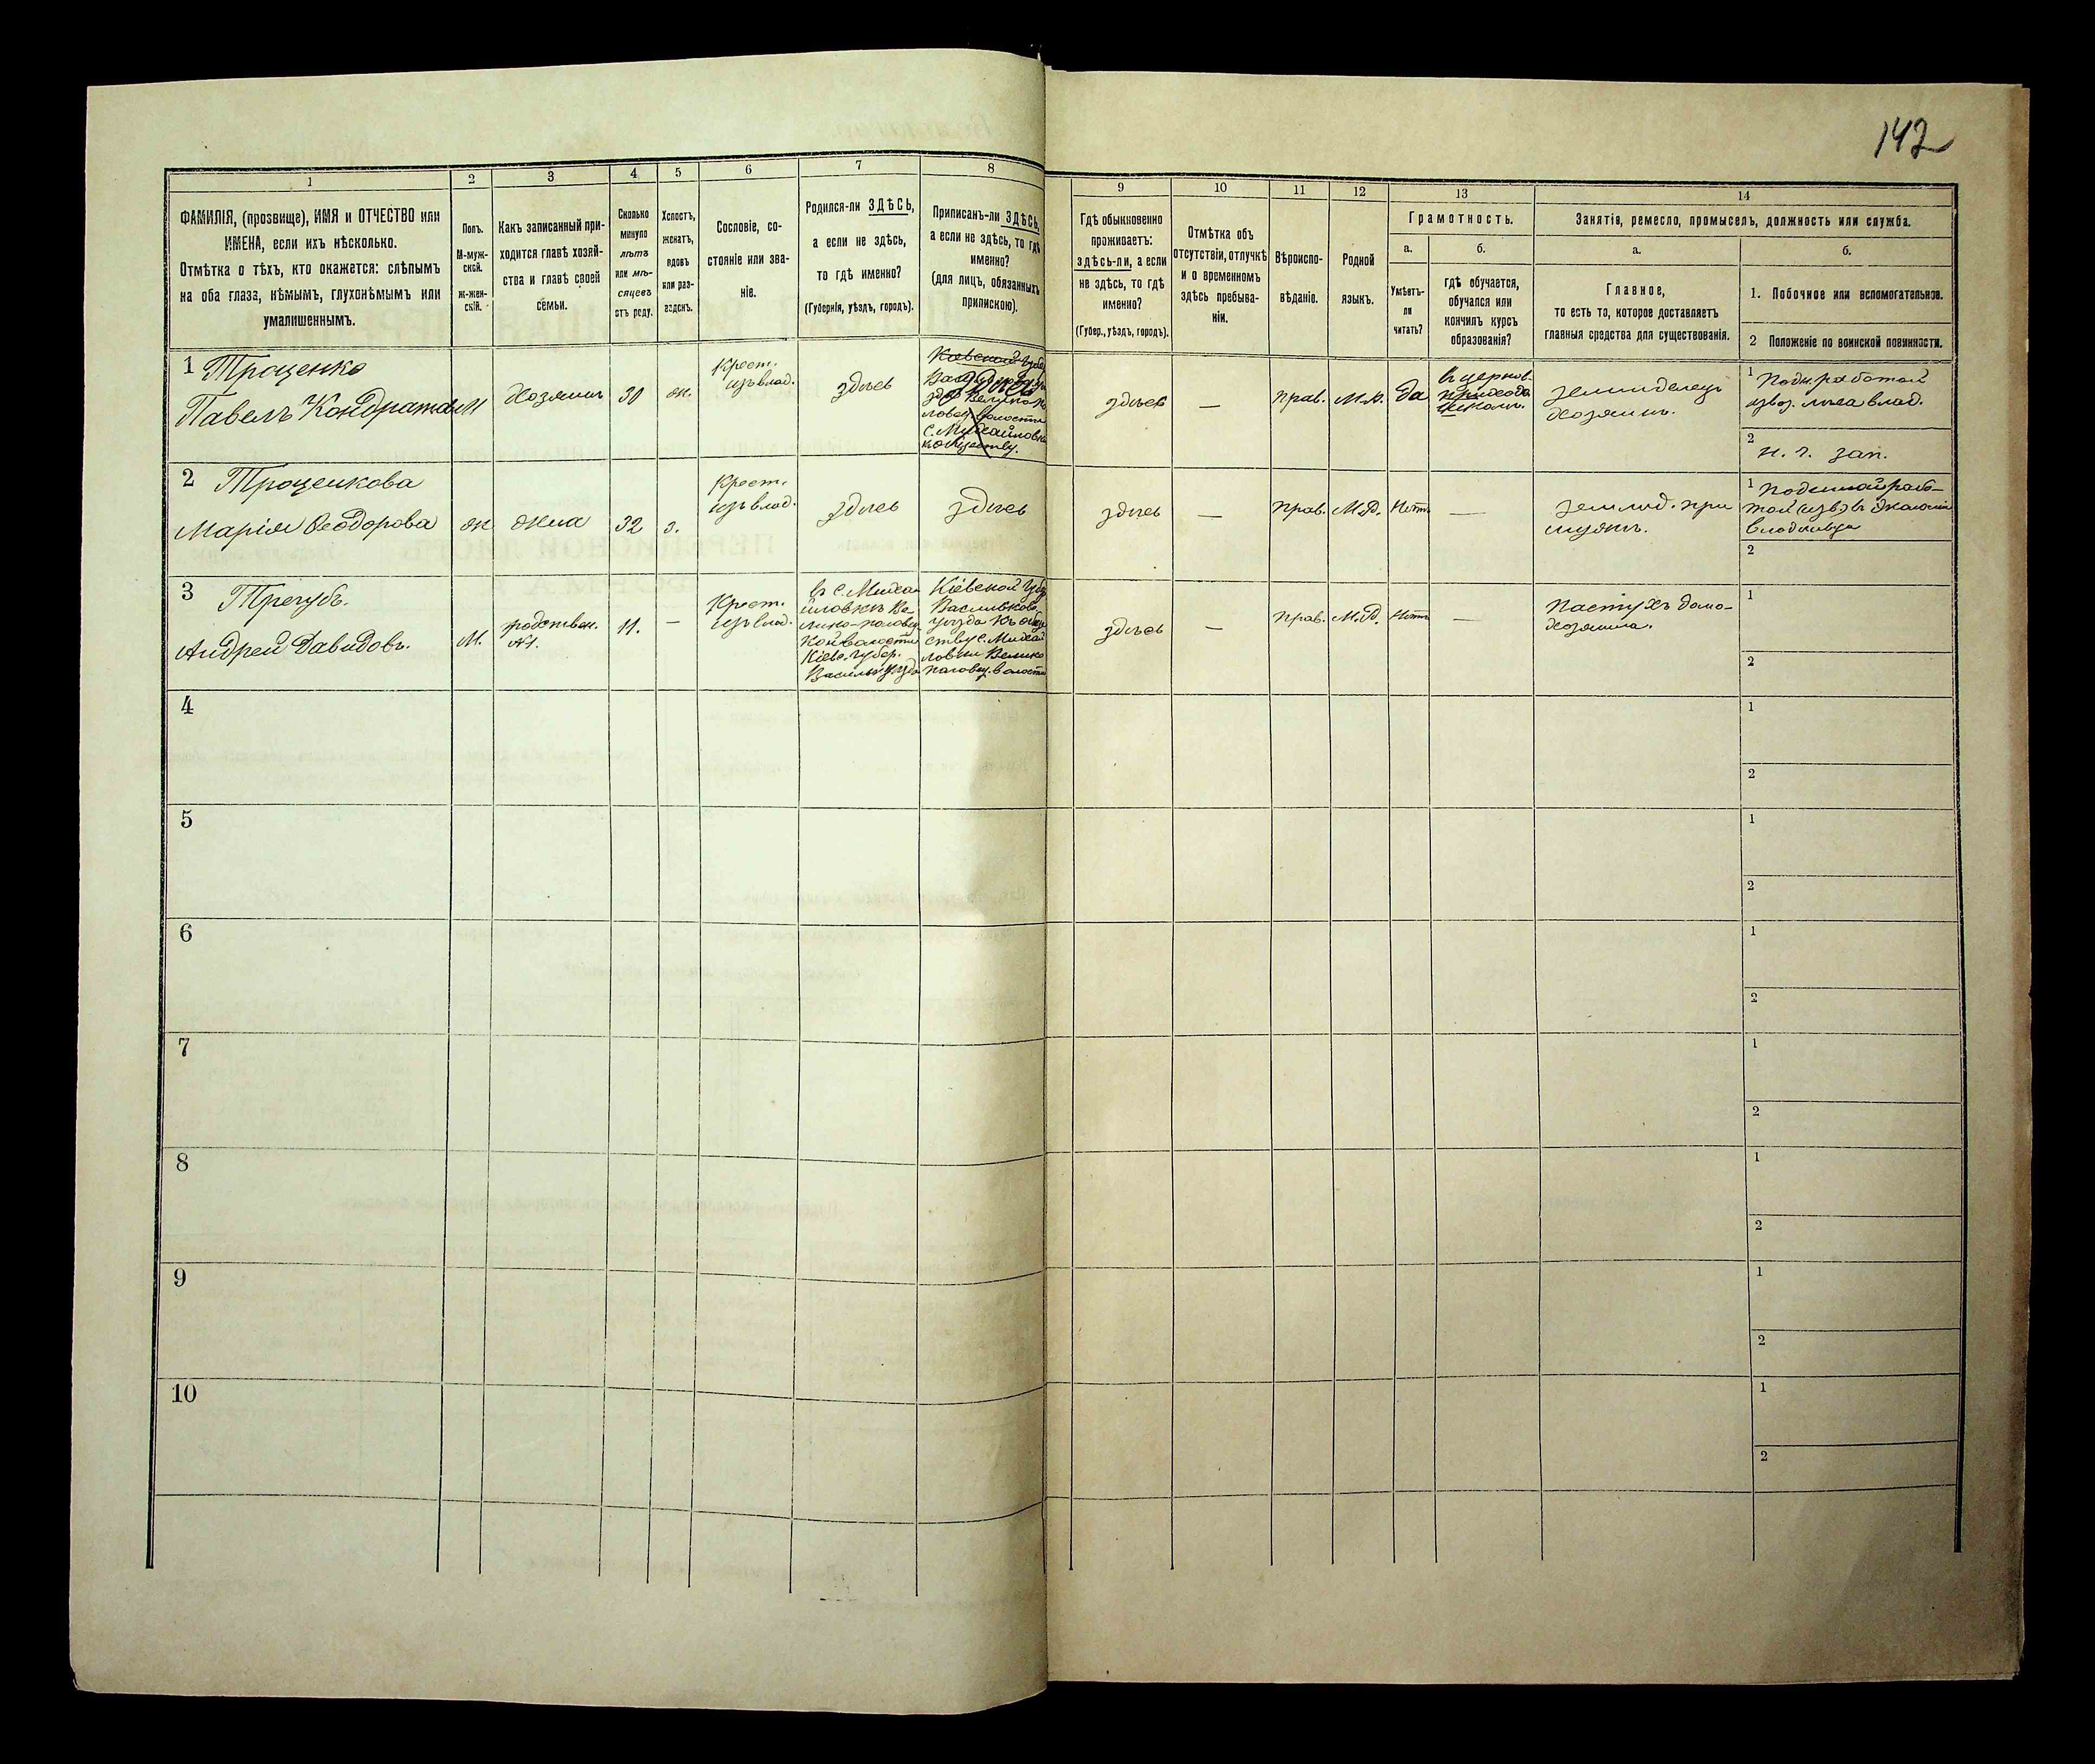 142
1
2
3
4
5
6
7
8
9
10
11
12
13
14
ФАМИЛІЯ, (прозвище), ИМЯ и ОТЧЕСТВО или
ИМЕНА, если ихъ нѣсколько.
Отмѣтка о тѣхъ, кто окажется: слѣпымъ
на оба глаза, нѣмымъ, глухонѣмымъ или
умалишеннымъ.
Полъ.
М-муж-
ской.
Ж-жен-
скій.
Какъ записанный при-
ходится главѣ хозяй-
ства и главѣ своей
семьи.
Сколько
минуло
лѣтъ
или мѣ-
сяцевъ
отъ роду.
Холостъ,
женатъ,
вдовъ
или раз-
веденъ.
Сословіе, со-
стояніе или зва-
ніе.
Родился-ли ЗДѢСЬ,
а если не здѣсь,
то гдѣ именно?
(Губернія, уѣздъ, городъ).
Приписанъ-ли ЗДѢСЬ,
а если не здѣсь, то гдѣ
именно?
(для лицъ, обязанныхъ
припискою).
Гдѣ обыкновенно
проживаетъ:
здѣсь-ли, а если
не здѣсь, то гдѣ
именно?
(Губер., уѣздъ, городъ).
Отмѣтка объ
отсутствіи, отлучкѣ
и о временномъ
здѣсь пребыва-
ніи.
Вѣроиспо-
вѣданіе.
Родной
языкъ.
Грамотность.
а.
Умѣетъ-
ли
читать?
б.
гдѣ обучается,
обучался или
кончилъ курсъ
образованія?
Занятія, ремесло, промыселъ, должность или служба.
а.
Главное,
то есть то, которое доставляетъ
главныя средства для существованія.
б.
1. Побочное или вспомогательное.
2 Положеніе по воинской повинности.
1 Троценко
Павелъ Кондратов
М
Хозяинъ
30
ж.
Крест.
изъ влад.
здѣсь
Кіевской Губер
здѣсь
волости
с. Михайловки
к обществу.
здѣсь
—
прав.
М.Р.
Да
въ церков.
приходск.
школѣ.
Земледѣлецъ
хозяинъ.
1 Подн. работой
2
н. ч. зап.
2 Троценкова
Марія Ѳеодорова
ж
жена
32
з.
Крест.
изъ влад.
здѣсь
здѣсь
здѣсь
—
прав.
М.Р.
Нѣтъ
—
Землед. при
мужѣ.
1 Поденной рабо-
той (изв.) въ экономіи
владѣльца
2
3 Трегубъ.
Андрей Давидовъ.
М.
родствен.
№1.
11.
—
Крест.
изъ влад.
въ с. Михай
йловкѣ Ве
лико-половец
кой волости
Кіев. губер.
Васильк. уѣзда
Кіевской Губер
Васильков.
уѣзда къ обще
ству с. Михай
ловки Велико
половец. волости
здѣсь
—
прав.
М.Р.
Нѣтъ
—
Пастухъ домо-
хозяина.
1
2
4
1
2
5
1
2
6
1
2
7
1
2
8
1
2
9
1
2
10
1
2